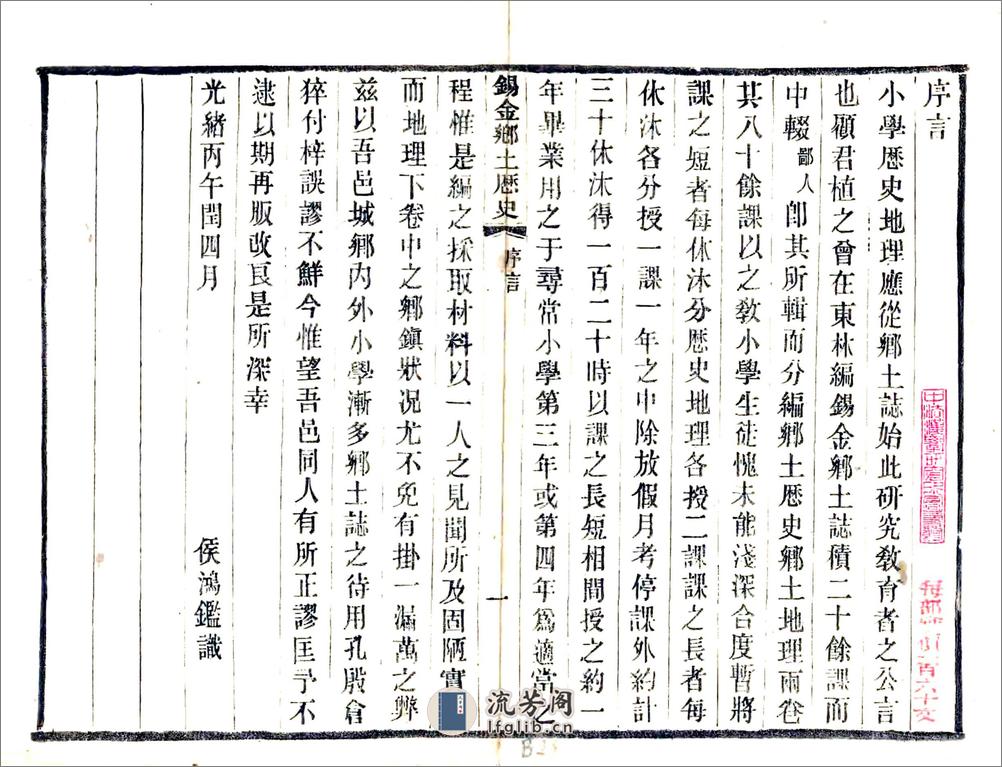 序言
小學厯史地理應從鄉土誌始此研究敎育者之公言
也顧君植之曾在東林編錫金鄉土誌積二十餘課而
中輟鄙人卽其所輯而分編鄉土厯史鄉土地理兩卷
共八十餘課以之敎小學生徒愧未能淺深合度暫將
課之短者每休沐分厯史地理各授二課課之長者每
休沐各分授一課一年之中除放假月考停課外約計
三十休沐得一百二十時以課之長短相間授之約一
年畢業用之于尋常小學第三年或第四年爲適當之
錫金鄉土厯史 序言 一
程惟是編之採取材料以一人之見聞所及固陋實
而地理下卷中之鄉鎮狀况尤不免有掛一漏萬之弊
茲以吾邑城鄉內外小學漸多鄉土誌之待用孔殷倉
猝付梓誤謬不鮮今惟望吾邑同人有所正謬匡予不
逮以期再版改良是所深幸
光緒丙午閏四月
侯鴻鑑識
每部 百六十文
流芳阁
lfglib.cn